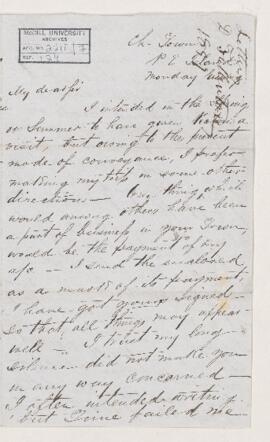 McGILL UNIVERSITY
ARCHIVES
ACC. NO. 2211 / 7
REF. 124
Ch. Town
P. E. Island
Monday
My dear Sir
I intended in the Spring
or Summer to have given him a
visit, but owing to the present
mode of conveyance, I
making my trip in some other
directions — One thing which
would among others have been
a part of business in your Town,
would be the payment of my
a/c — I send the enclosed
as a mark of its payment,
I have got yours signed —
so that all things may appear
well — I trust my long
silence did not make you
in any way concerned —
I often intended writing
but Time failed me